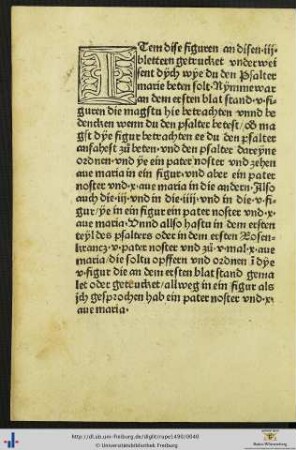 ITem dise figuren an disen·iij·
bletteren getrucket vnderwei
sent dych wye du den Psalter
marie beten solt·Nymmewar
an dem ersten blat stand·v·fi
guren die magstu hie betrachten vnnd be
dencken wenn du den psalter betest/ob ma
gst dye figur betrachten ee du den psalter
ansahest zů beten·vnd den psalter dareyne
ordnen·vnd ye ein pater noster vnd zehen
aue maria in ein figur·vnd aber ein pater
noster vnd·x·aue maria in die andern·Also
auch die·iij·vnd in die·iiij·vnd in die·v·fi-
gur/ye in ein figur ein pater noster vnd·x·
aue maria·Vnnd also hastu in dem ersten
teyl des psalters oder in dem ersten Rosen-
krancz·v·pater noster vnd zů·v·mal·x·aue
maria/die soltu opffern vnd ordnen ĩ dye
v·figur die an dem ersten blat stand gema
let oder getrucket/allweg in ein figur als
jch gesprochen hab ein pater noster vnd·x·
aue maria·
http://dl.ub.uni-freiburg.de/diglit/rupe1490/0048
© Universitätsbibliothek Freiburg
Baden-Württemberg